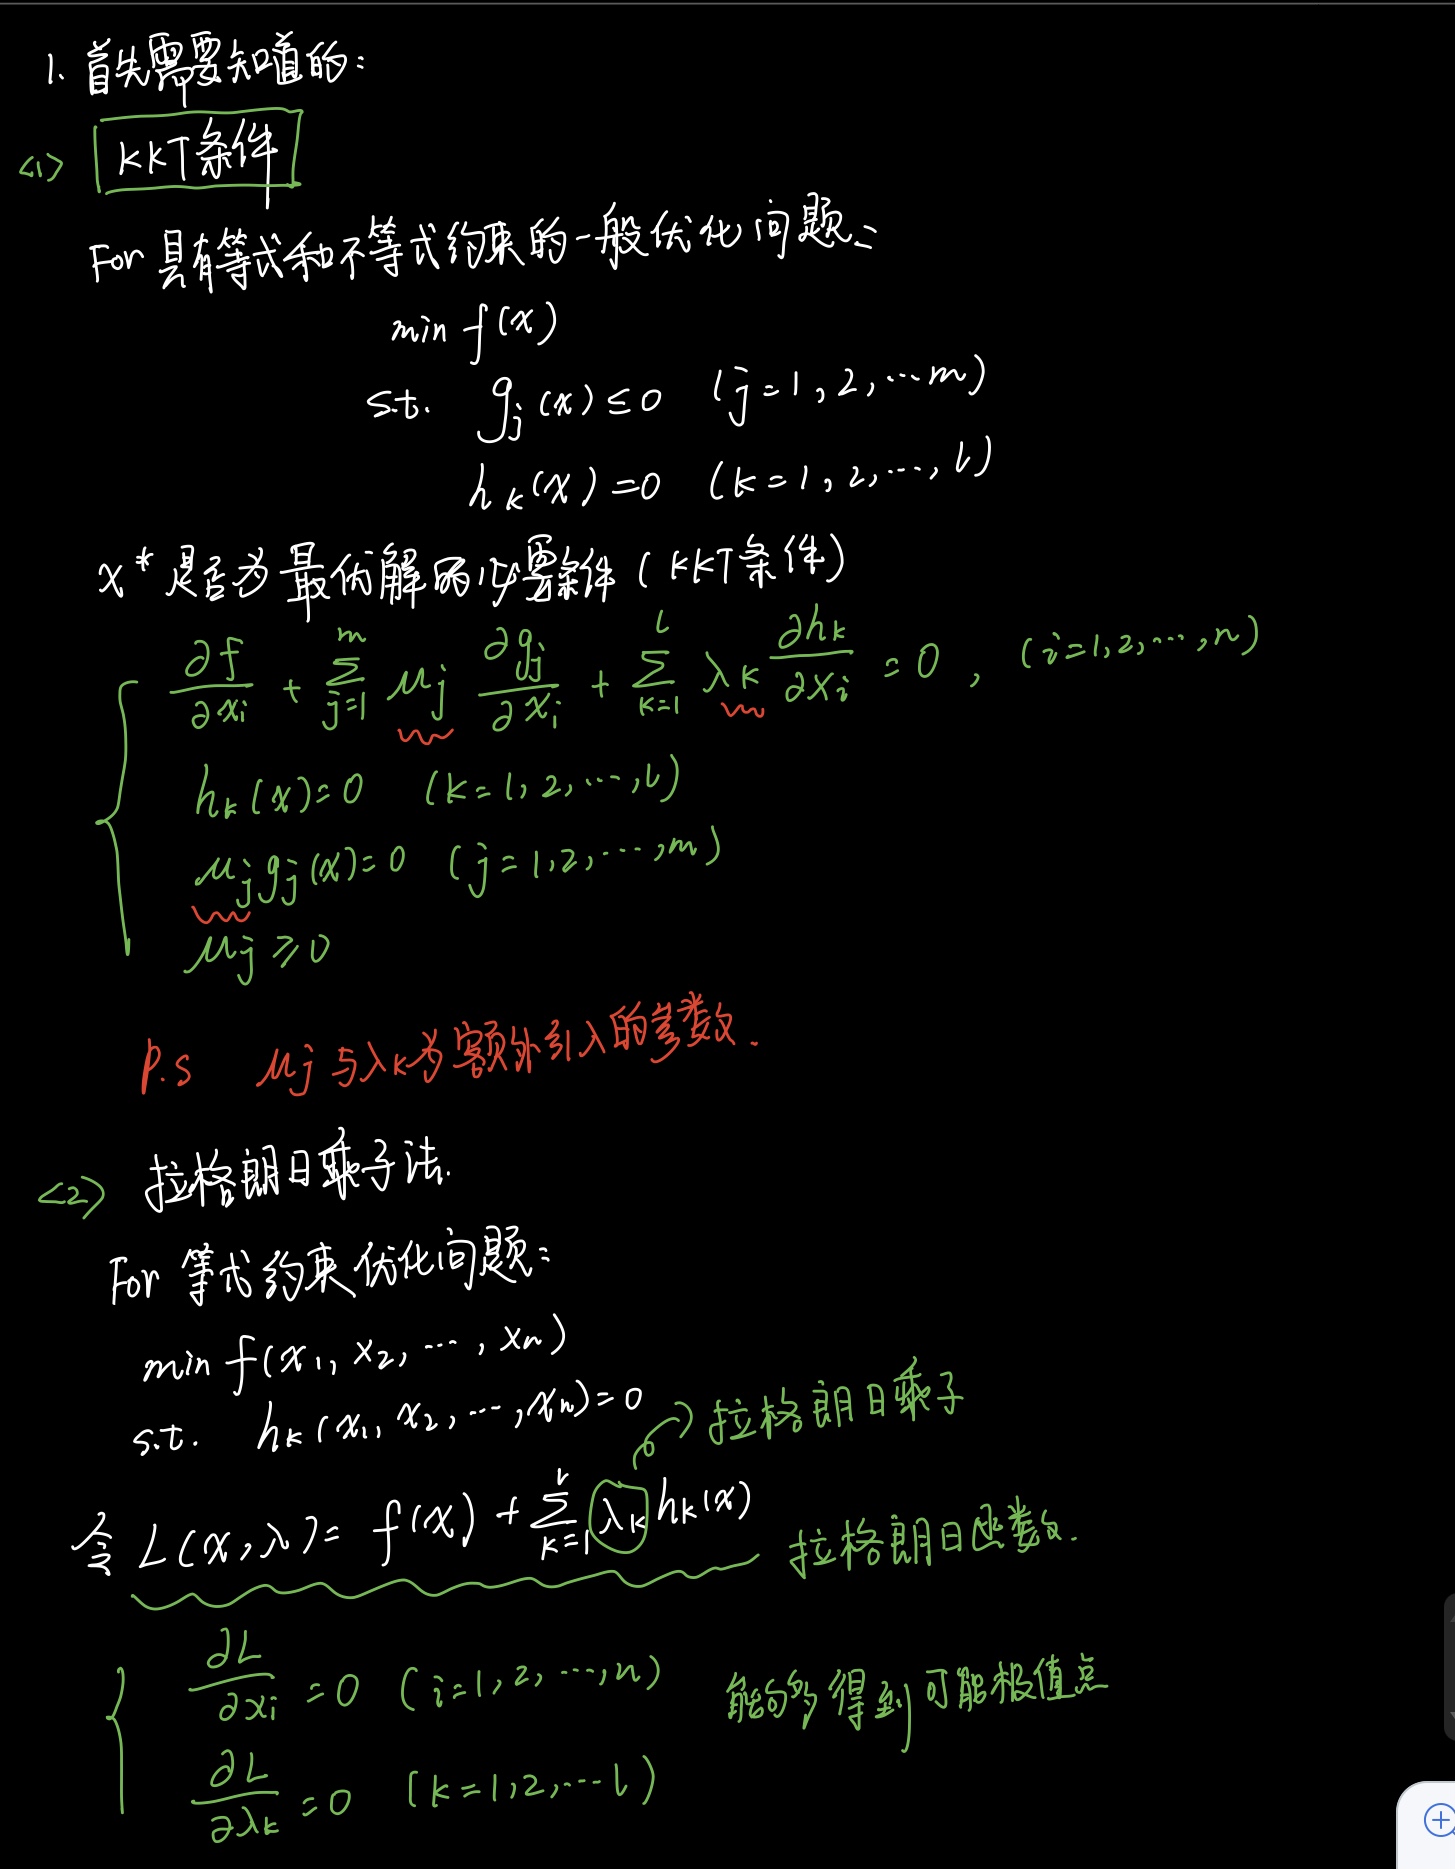 1. 首先需要知道的:
<1> KKT条件
For 具有等式和不等式约束的一般优化问题:
min f(x)
s.t. gj(x)≤0 (j=1,2,…m)
hk(x)=0 (k=1,2,…,l)
x*是否为最优解的必要条件(KKT条件)
∂f/∂xi + Σ_{j=1}^{m} μj ∂gj/∂xi + Σ_{k=1}^{l} λk ∂hk/∂xi = 0, (i=1,2,…,n)
hk(x)=0 (k=1,2,…,l)
μjgj(x)=0 (j=1,2,…,m)
μj≥0
P.S μj与λk为额外引入的参数.
<2> 拉格朗日乘子法.
For 等式约束优化问题:
min f(x1,x2,…,xn)
s.t. hk(x1,x2,…,xn)=0
拉格朗日乘子
令 L(x,λ)= f(x) + Σ_{k=1}^{l} λk hk(x)
拉格朗日函数.
∂L/∂xi =0 (i=1,2,…,n) 能够得到可能极值点
∂L/∂λk =0 (k=1,2,…l)